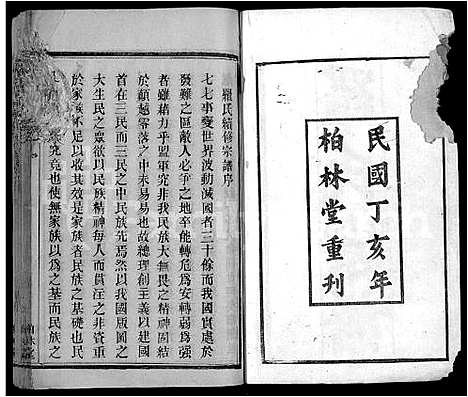 民國丁亥年
柏林堂重刊
羅氏續修宗譜序
七七事變世界波動滅國者三十餘而我國實處於
發難之區敵人必爭之地卒能轉危爲安轉弱爲強
者雖藉力乎盟軍究非我民族大無畏之精神團結
於顛越零落之中未易易也故總理創主義以建國
首在三民而三民之中民族先焉然以我國版圖之
大生民之眾欲以民族精神每人而貫注之非資重
於家族不足以收其效是家族者民族之基礎也民
究竟也使無家族以爲之基而民族之